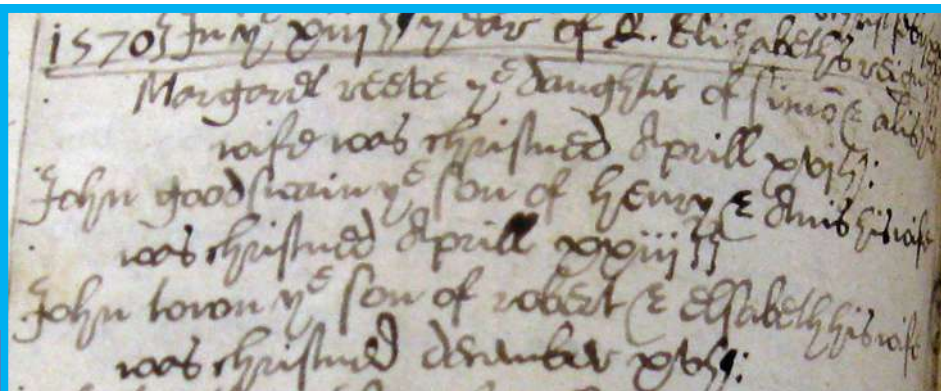 1570 In ye xiij year of Q. Elizabeths reign
Margaret reeve ye daughter of simō & alis his
wife was christned Aprill xvij:
John goodswain ye son of henry & Anis his wife
was christned Aprill xxiij
John town ye son of robert & elsabeth his wife
was christned december xvij: